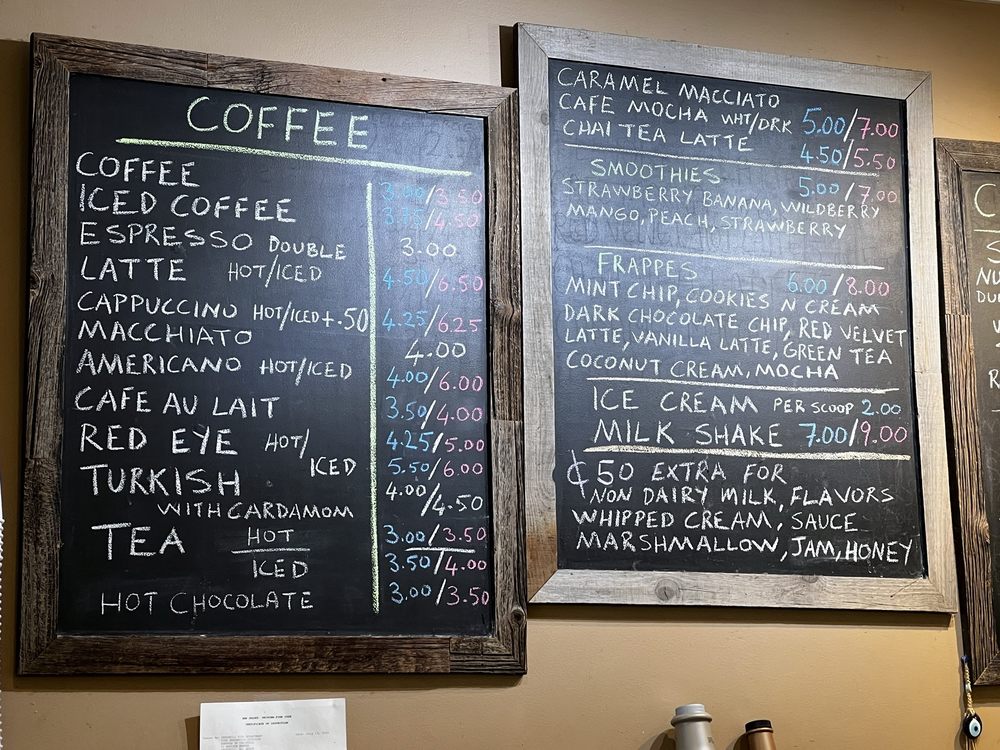 COFFEE
COFFEE 3.00/3.50
ICED COFFEE 3.75/4.50
ESPRESSO DOUBLE 3.00
LATTE HOT/ICED 4.50/6.50
CAPPUCCINO HOT/ICED+.50 4.25/6.25
MACCHIATO 4.00
AMERICANO HOT/ICED 4.00/6.00
CAFE AU LAIT 3.50/4.00
RED EYE HOT/ 4.25/5.00
ICED 5.50/6.00
TURKISH 4.00/4.50
WITH CARDAMOM
TEA HOT 3.00/3.50
ICED 3.50/4.00
HOT CHOCOLATE 3.00/3.50
CARAMEL MACCIATO
CAFE MOCHA WHT/DRK 5.00/7.00
CHAI TEA LATTE 4.50/5.50
SMOOTHIES 5.00/7.00
STRAWBERRY BANANA, WILDBERRY
MANGO, PEACH, STRAWBERRY
FRAPPES 6.00/8.00
MINT CHIP, COOKIES N CREAM
DARK CHOCOLATE CHIP, RED VELVET
LATTE, VANILLA LATTE, GREEN TEA
COCONUT CREAM, MOCHA
ICE CREAM PER SCOOP 2.00
MILK SHAKE 7.00/9.00
¢50 EXTRA FOR
NON DAIRY MILK, FLAVORS
WHIPPED CREAM, SAUCE
MARSHMALLOW, JAM, HONEY